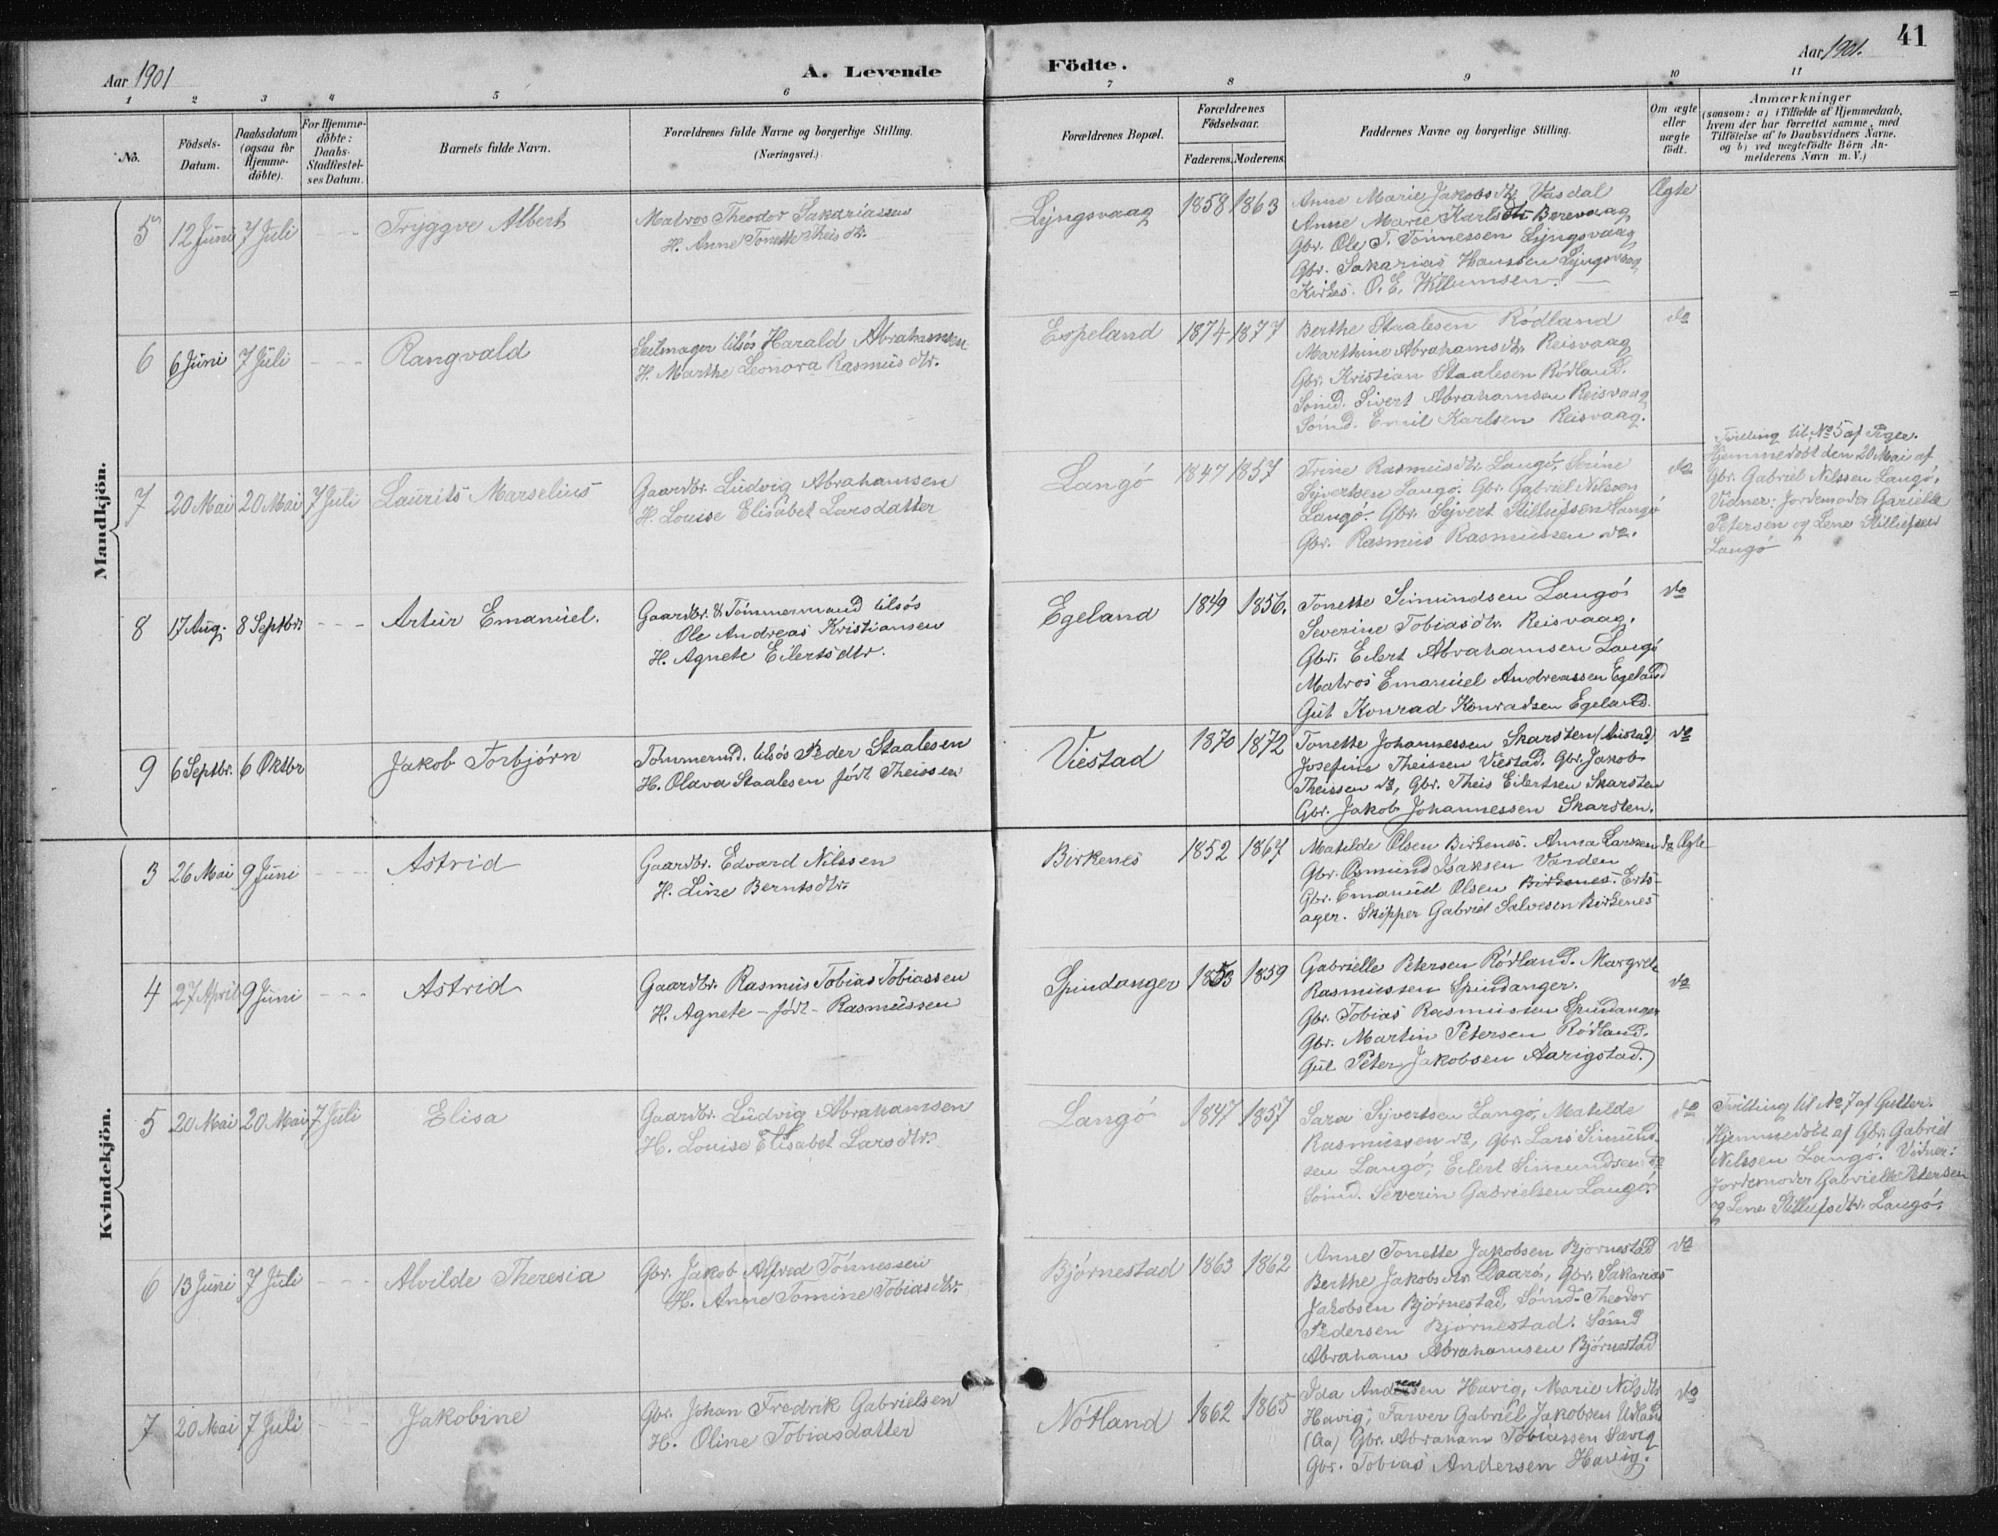 41
Aar 1901
A. Levende Födte.
Aar 1901.
1 2 3 4 5 6 7 8 9 10 11
No.
Födsels-Datum.
Daabsdatum (ogsaa for Hjemme-döbte).
For Hjemme-döbte: Daabs-Stadfæstel-ses Datum.
Barnets fulde Navn.
Forældrenes fulde Navne og borgerlige Stilling.
(Næringsvei.)
Forældrenes Bopæl.
Forældrenes Födselsaar.
Faderens. Moderens.
Faddernes Navne og borgerlige Stilling.
Om ægte eller uægte födt.
Anmærkninger
(saasom: a) i Tilfælde af Hjemmedaab, hvem der har forrettet samme, med Tilföielse af to Daabsvidners Navne. og b) ved uægtefödte Börn An-melderens Navn m. V.)
Mandkjön.
5 12 Juni 7 Juli - - - Tryggve Albert
Matros Theodor Sakariassen
H. Anne Tonette Theisdtr.
Lyngsvaag 1858 1863
Anne Marie Jakobsdtr. Vasdal
Anne Marie Karlsdtr. Borevaag
Gbr. Ole T. Tönnessen Lyngsvaag
Gbr. Sakarias Hanssen Lyngsvaag
Kirkes. O. E. Willumsen.
Ægte
6 6 Juni 7 Juli - - - Rangvald
Seilmager tilsös Harald Abrahamsen
H. Marthe Leonora Rasmusdtr.
Espeland 1874 1877
Berthe Staalesen Rödland
Marthine Abrahamsdtr. Reisvaag
Gbr. Kristian Staalesen Rödland.
Sömd. Sivert Abrahamsen Reisvaag
Sömd. Emil Karlsen Reisvaag.
do
7 20 Mai 20 Mai 7 Juli Laurits Marselius
Gaardbr. Ludvig Abrahamsen
H. Louise Elisabet Larsdatter
Langö 1847 1857
Trine Rasmusdtr. Langö, Serine
Syvertsen Langö. Gbr. Gabriel Nilssen
Langö. Gbr. Syvert Stillufsen Langö
Gbr. Rasmus Rasmussen do.
do
Tvilling til No 5 af Piger.
Hjemmedöbt den 20 Mai af
Gbr. Gabriel Nilssen Langö,
Vidner: Jordemoder Garielle
Petersen og Lene Stillufsen
Langö
8 17 Aug. 8 Septbr. - - - Artur Emanuel.
Gaardbr. & Tömmermand tilsös
Ole Andreas Kristiansen
H. Agnete Eilertsdtr.
Egeland 1849 1856.
Tonette Simundsen Langö
Severine Tobiasdtr. Reisvaag.
Gbr. Eilert Abrahamsen Langö
Matros Emanuel Andreassen Egeland
Gut Konrad Konradsen Egeland.
do
9 6 Septbr. 6 Oktbr Jakob Torbjörn
Tömmermd. tilsös Peder Staalesen
H. Olava Staalesen födt Theissen
Viestad 1870 1872
Tonette Johannessen Skarsten
Josefine Theissen Viestad. Gbr. Jakob
Theissen do, Gbr. Theis Eilertsen Skarsten
Gbr. Jakob Johannessen Skarsten.
do
Kvindekjön.
3 26 Mai 9 Juni - - - Astrid
Gaardbr. Edvard Nilssen
H. Line Berntsdtr.
Birkenes 1852 1867
Matilde Olsen Birkenes. Anna Larssen do
Gbr. Osmund Isaksen Vanden
Gbr. Emanuel Olsen Birkenes. Erts-
ager. Skipper Gabriel Salvesen Birkenes
Ægte
4 27 April 9 Juni - - - Astrid
Gaardbr. Rasmus Tobias Tobiassen
H. Agnete - födt - Rasmussen
Spindanger 1853 1859
Gabrielle Petersen Rödland. Margrete
Rasmussen Spindanger.
Gbr. Tobias Rasmussen Spindanger
Gbr. Martin Petersen Rödland.
Gut Peter Jakobsen Aarigstad.
do
5 20 Mai 20 Mai 7 Juli Elisa
Gaardbr. Ludvig Abrahamsen
H. Louise Elisabet Larsdtr.
Langö 1847 1857
Sara Syvertsen Langö, Matilde
Rasmussen do, Gbr. Lars Simund-
sen Langö, Eilert Simundsen do
Sömd. Severin Gabrielsen Langö.
do
Tvilling til No 7 af Gutter.
Hjemmedöbt af Gbr. Gabriel
Nilssen Langö. Vidner:
Jordemoder Gabrielle Petersen
og Lene Stillufsdtr. Langö.
6 13 Juni 7 Juli - - - Alvilde Theresia
Gbr. Jakob Alfred Tönnessen
H. Anne Tomine Tobiasdtr.
Bjørnestad 1863 1862
Anne Tonette Jakobsen Bjornestad
Berthe Jakobsdtr. Daarö, Gbr. Sakarias
Jakobsen Bjørnestad, Sömd. Theodor
Pedersen Bjørnestad. Sömd
Abraham Abrahamsen Bjørnestad
do
7 20 Mai 7 Juli - - - Jakobine
Gbr. Johan Fredrik Gabrielsen
H. Oline Tobiasdatter
Nötland 1862 1865
Ida Andreasen Havig, Marie Nilsdtr
Havig, Farver Gabriel Jakobsen Udland
(Aa) Gbr. Abraham Tobiassen Sævig
Gbr. Tobias Andersen Havig.
do